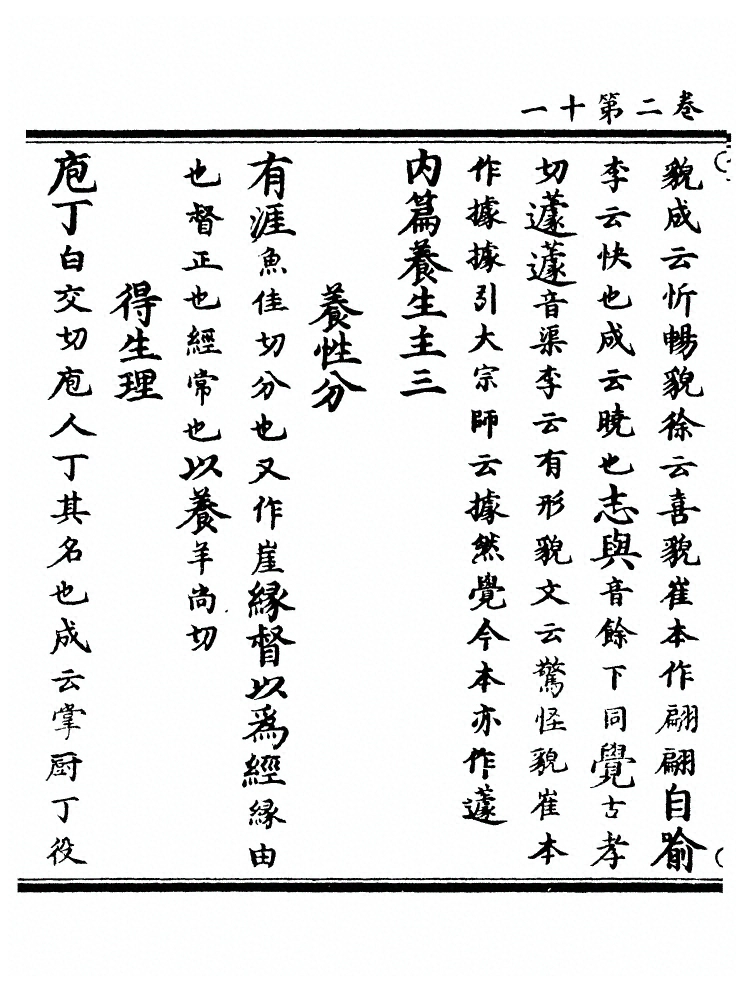 卷二第十一
貌成云忻暢貌徐云喜貌崔本作翩翩自喻
李云快也成云曉也志與音餘下同覺古孝
切蘧蘧音渠李云有形貌文云驚怪貌崔本
作據據引大宗師云據然覺今本亦作蘧
內篇養生主三
養性分
有涯魚佳切分也又作崖緣督以爲經緣由
也督正也經常也以養羊尚切
得生理
庖丁白交切庖人丁其名也成云掌厨丁役